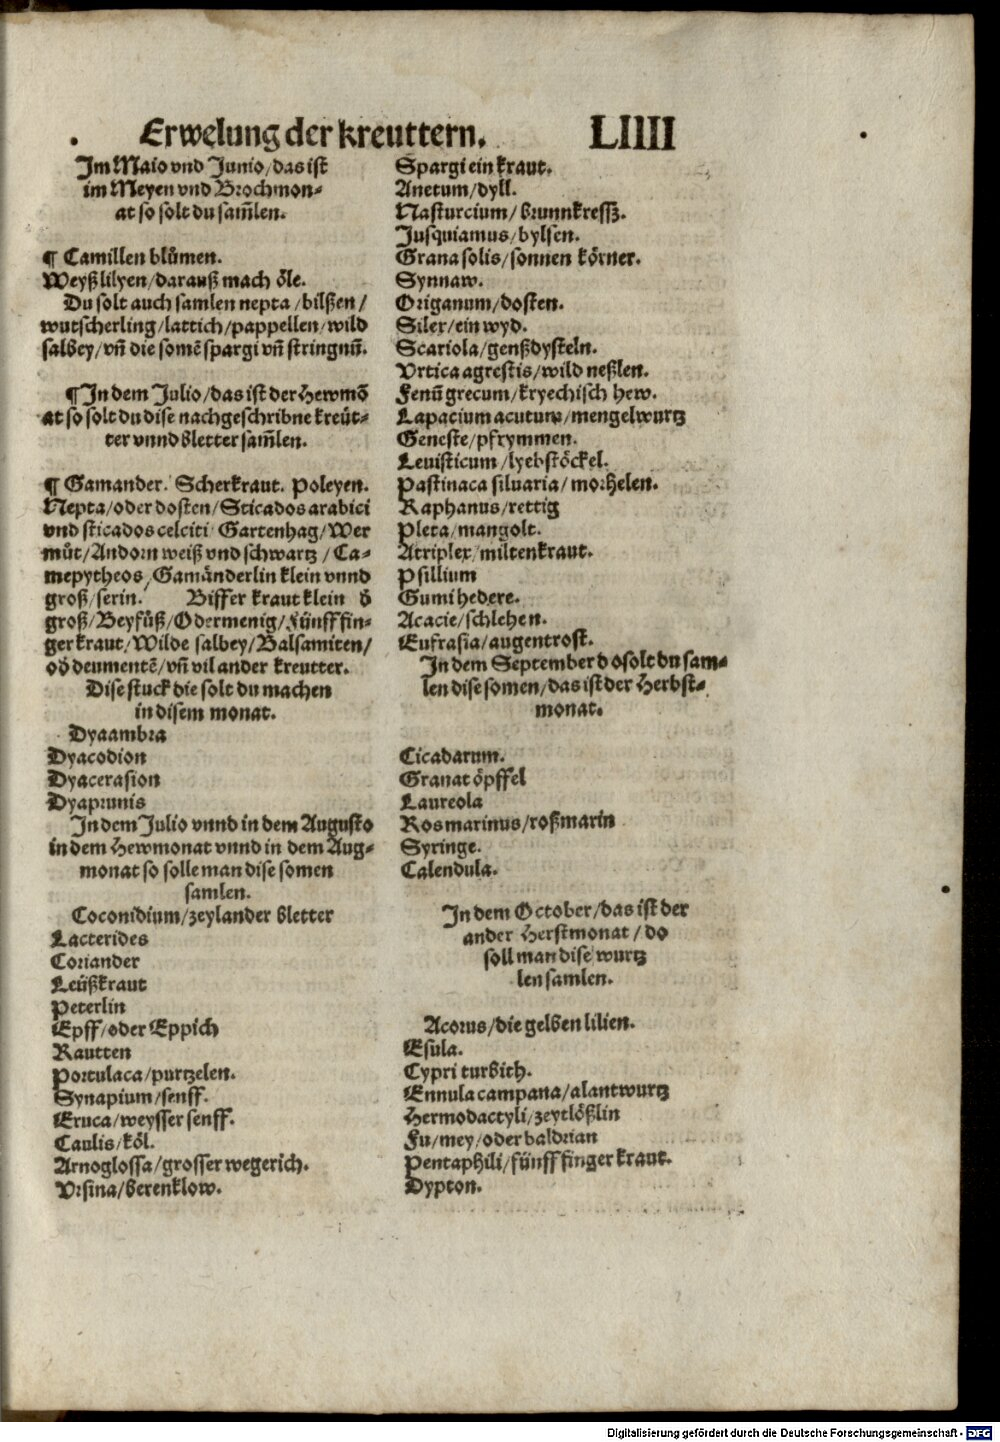 Erwelung der kreuttern. LIIII
Im Maio vnd Junio/das ist
im Meyen vnd Brochmon-
at so solt du sam̄len.
¶ Camillen blůmen.
Weyß lilyen/darauß mach öle.
Du solt auch samlen nepta/bilßen/
wutscherling/lattich/pappellen/wild
salbey/vn̄ die somē spargi vn̄ stringnū.
¶ In dem Julio/das ist der Hewmō
at so solt du dise nachgeschribne kreüt-
ter vnnd bletter sam̄len.
¶ Gamander. Scherkraut. Poleyen.
Nepta/oder dosten/Sticados arabici
vnd sticados celciti Gartenhag/Wer
můt/Andorn weiß vnd schwartz/Ca-
mepytheos/Gamänderlin klein vnnd
groß/serin. Biffer kraut klein ð
groß/Beyfůß/Odermenig/Fünff fin-
ger kraut/Wilde salbey/Balsamiten/
oð deumentē/vn̄ vil ander kreutter.
Dise stuck die solt du machen
in disem monat.
Dyaambra
Dyacodion
Dyacerasion
Dyaprunis
In dem Julio vnnd in dem Augusto
in dem Hewmonat vnnd in dem Aug-
monat so solle man dise somen
samlen.
Coconidium/zeylander bletter
Lacterides
Coriander
Leüßkraut
Peterlin
Epff/oder Eppich
Rautten
Portulaca/purtzelen.
Synapium/senff.
Eruca/weysser senff.
Caulis/köl.
Arnoglossa/grosser wegerich.
Vrsina/berenklow.
Spargi ein kraut.
Anetum/dyll.
Nasturcium/brunnkressz.
Jusquiamus/bylsen.
Grana solis/sonnen körner.
Synnaw.
Origanum/dosten.
Siler/ein wyd.
Scariola/genßdysteln.
Vrtica agrestis/wild neßlen.
Fenū grecum/kryechisch hew.
Lapacium acutum/mengelwurtz
Geneste/pfrymmen.
Leuisticum/lyebstöckel.
Pastinaca siluaria/morhelen.
Raphanus/rettig
Pleta/mangolt.
Atriplex/miltenkraut.
Psillium
Gumi hedere.
Acacie/schlehen.
Eufrasia/augentrost.
In dem September do solt du sam-
len dise somen/das ist der Herbst-
monat.
Cicadarum.
Granat öpffel
Laureola
Rosmarinus/roßmarin
Syringe.
Calendula.
In dem October/das ist der
ander Herstmonat/do
soll man dise wurtz
len samlen.
Acorus/die gelben lilien.
Esula.
Cypri turbith.
Ennula campana/alantwurtz
Hermodactyli/zeytlößlin
Fu/mey/oder baldrian
Pentaphili/fünff finger kraut.
Dypton.
Digitalisierung gefördert durch die Deutsche Forschungsgemeinschaft - DFG